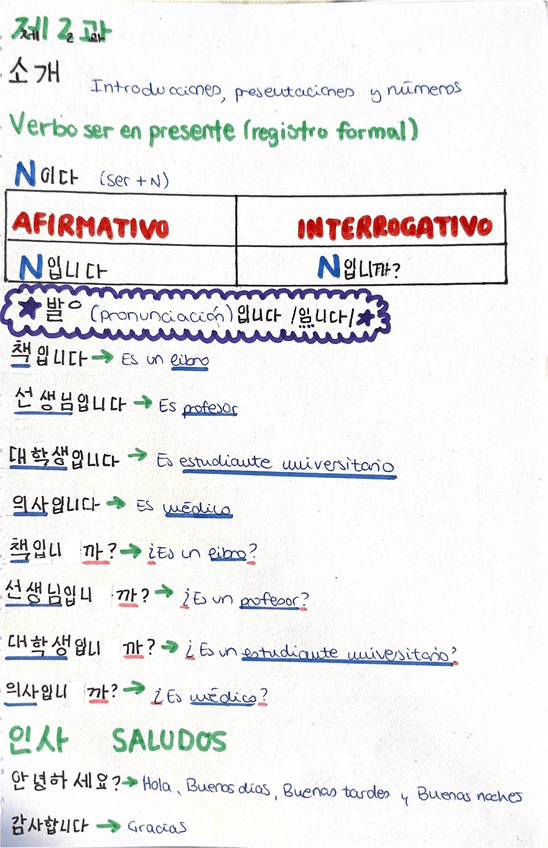 제 2 과
소개 Introducciones, presentaciones y números
Verbo ser en presente (registro formal)
N이다 (ser + N)
AFIRMATIVO INTERROGATIVO
N입니다 N입니까?
발음 (pronunciación) 입니다 /임니다/
책입니다 → Es un libro
선생님입니다 → Es profesor
대학생입니다 → Es estudiante universitario
의사입니다 → Es médico
책입니 까? → ¿Es un libro?
선생님입니 까? → ¿Es un profesor?
대학생입니 까? → ¿Es un estudiante universitario?
의사입니 까? → ¿Es médico?
인사 SALUDOS
안녕하세요? → Hola, Buenos días, Buenas tardes y Buenas noches
감사합니다 → Gracias